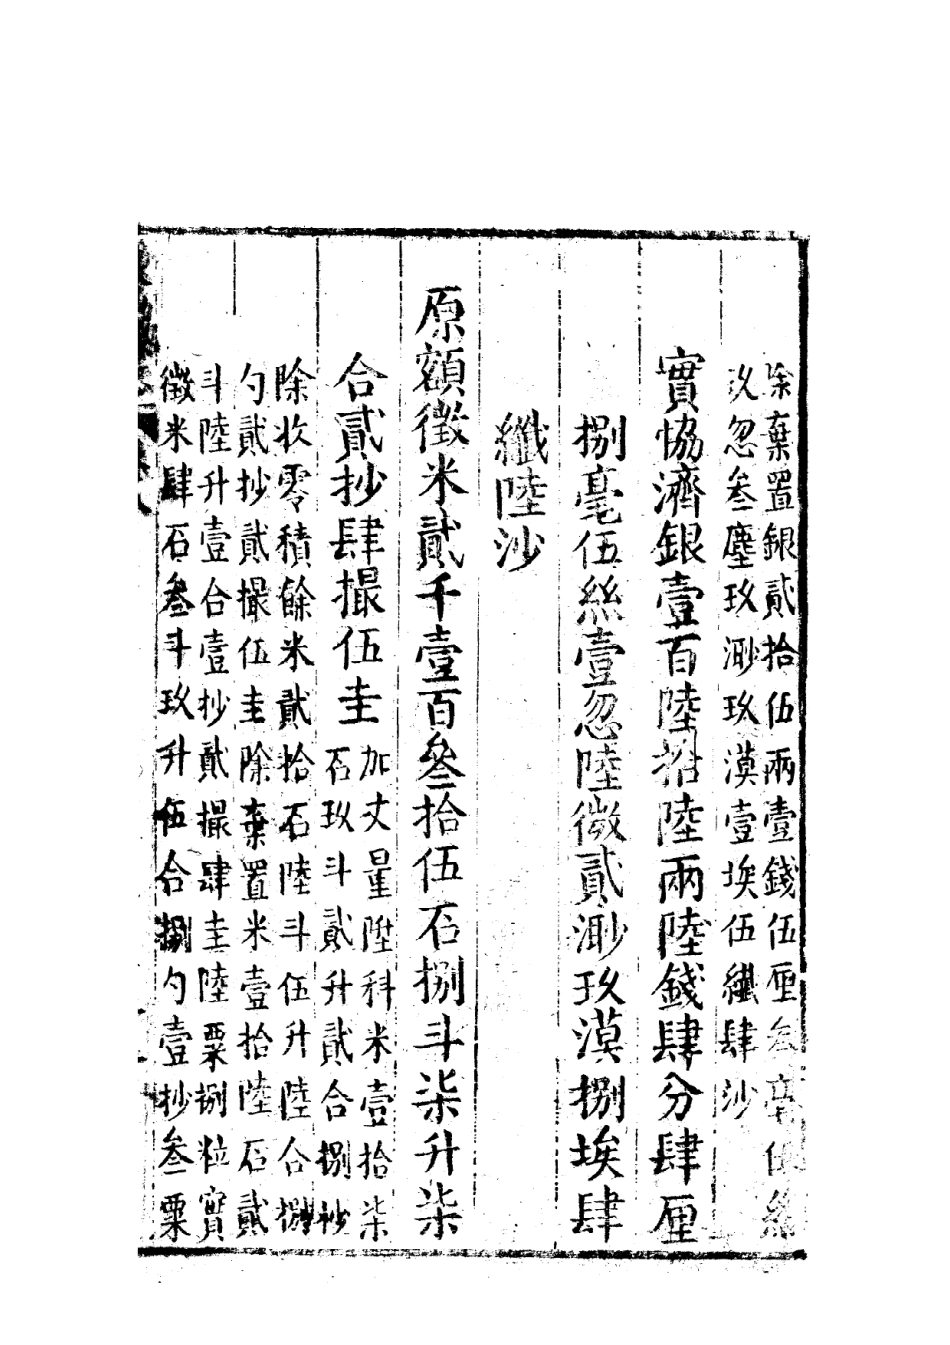 除棄置銀貳拾伍兩壹錢伍厘叁毫伍絲
玖忽叁塵玖渺玖漠壹埃伍纖肆沙
實協濟銀壹百陸拾陸兩陸錢肆分肆厘
捌毫伍絲壹忽陸微貳渺玖漠捌埃肆
纖陸沙
原額徵米貳千壹百叁拾伍石捌斗柒升柒
合貳抄肆撮伍圭
加丈量陞科米壹拾柒
石玖斗貳升貳合捌抄
除收零積餘米貳拾石陸斗伍升陸合捌
勺貳抄貳撮伍圭除棄置米壹拾陸石貳
斗陸升壹合壹抄貳撮肆圭陸粟捌粒實
徵米肆石叁斗玖升伍合捌勺壹抄叁粟